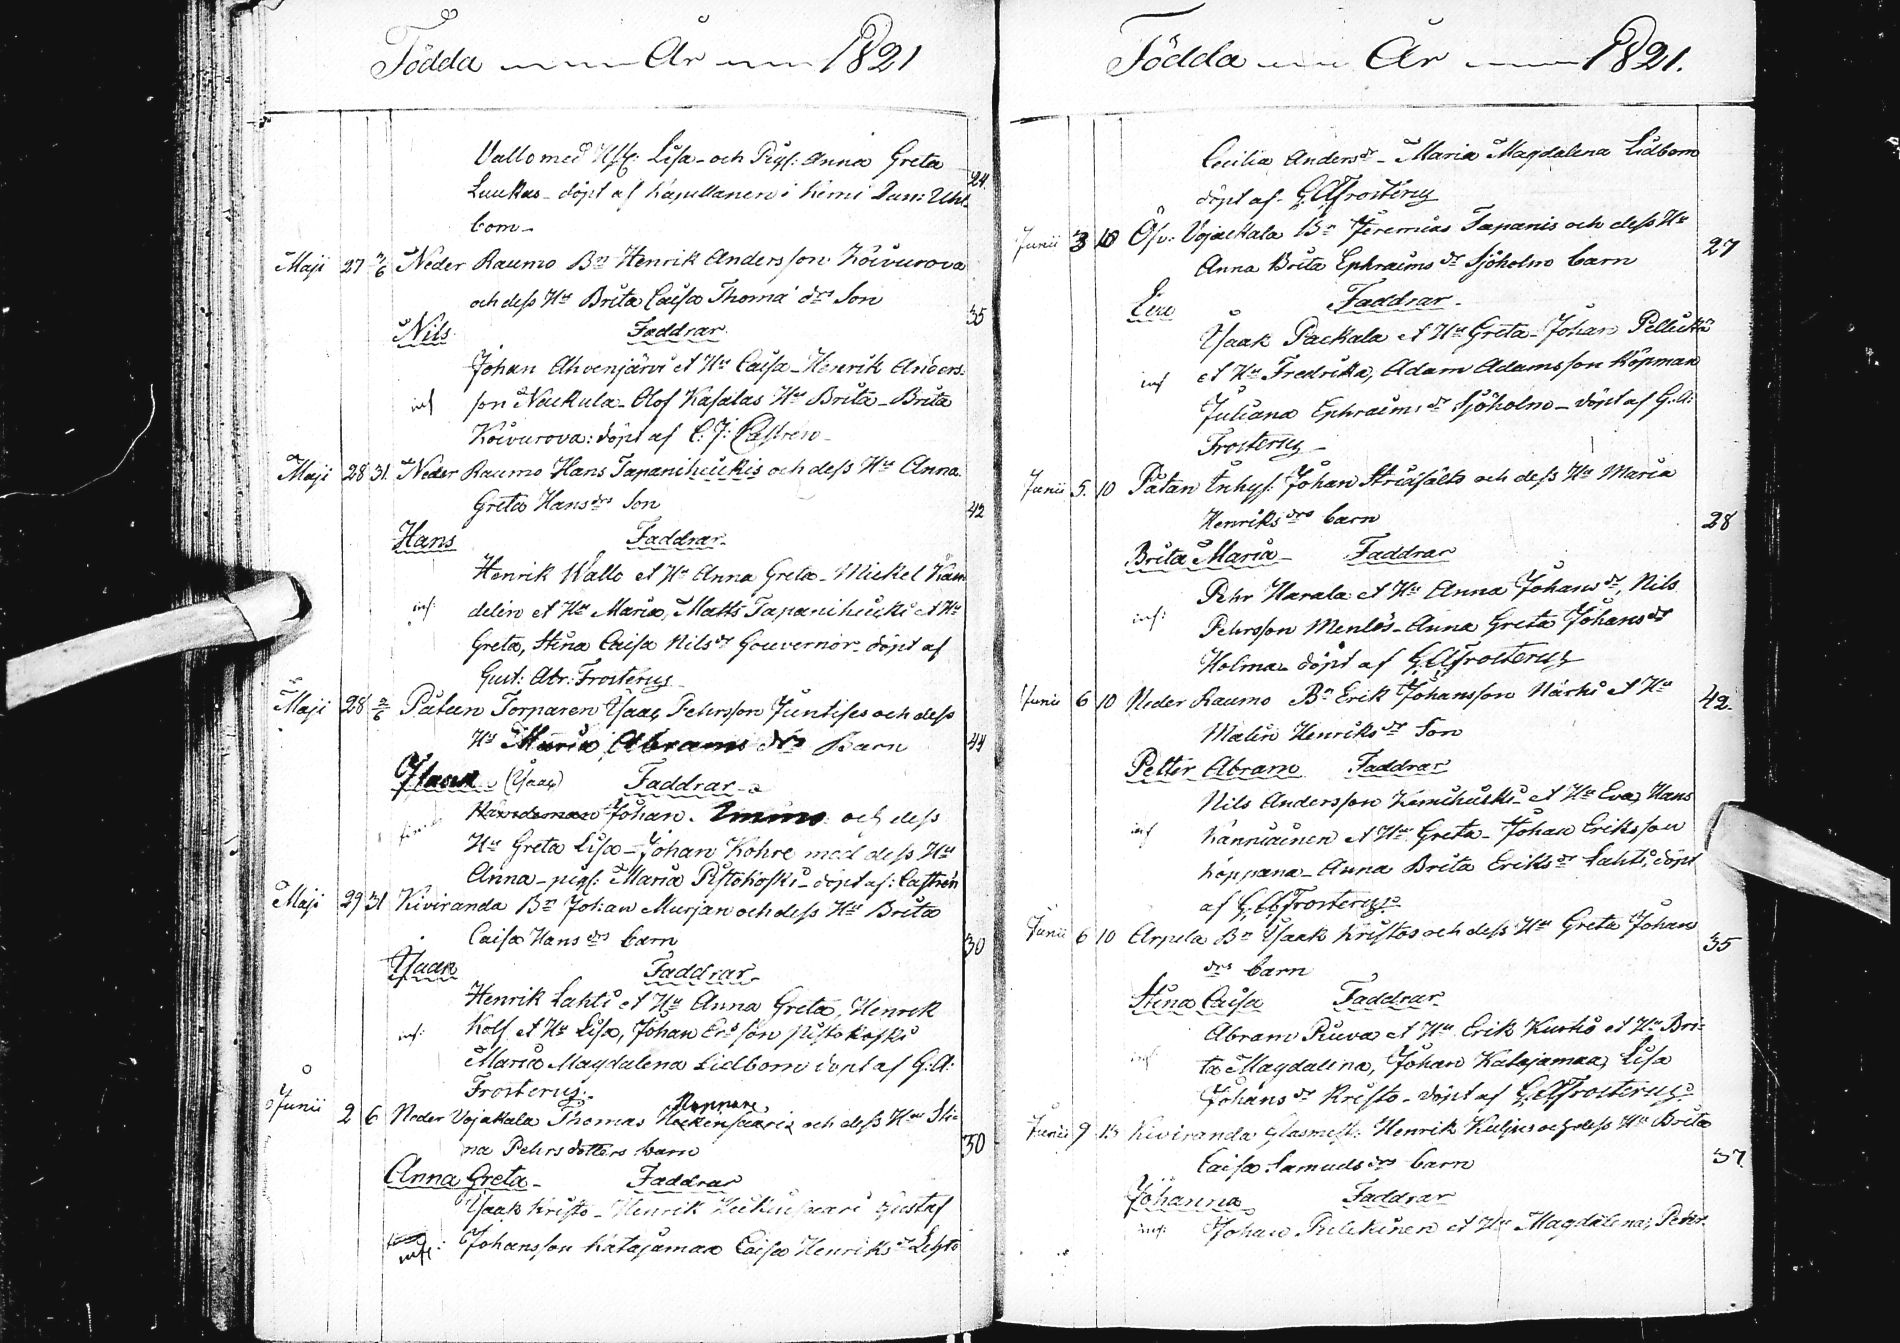 Födda År 1821
Vallo med H: Lisa och Pig: Anna Greta 24
Luukas döpt af Kapellanen i Kemi Dan: Uhl-
bom
Maji 27 2/6 Neder Raumo Bn Henrik Andersson Koivurova
och dess Hu Brita Caisa Thomæ drs Son 35
Nils Faddrar
Johan Ahvenjärvi et Hu Caisa Henrik Anders-
inf son Naukula Olof Kasalas Hu Brita Brita
Koivurova: döpt af C: J: Castrén
Maji 28 31. Neder Raumo Hans Tapanihuikis och dess Hu Anna
Greta Hans drs Son 42
Hans Faddrar
Henrik Wallo et Hu Anna Greta Mickel Kan
inf: delin et Hu Maria, Matts Tapanihuiki et Hu
Greta, Stina Caisa Nils dr Gouvernör döpt af
Gust: Abr: Frosterus
Maji 28 2/6 Paten Torparen Isaac Pehrsson Juntises och dess
Hu Maria Abrams drs Barn 44
Isaac (Isaac) Faddrar
Johan och dess
Hu Greta Lisa Johan Kohre med dess Hu
Anna pig: Maria Pistokoski döpt af: Castrén
Maji 29 31 Kiviranda Bn Johan Murjan och dess Hu Brita
Caisa Hans drs barn 30
Isaak Faddrar
Henrik Lahti et Hu Anna Greta, Henrik
inf: Kolf et Hu Lisa, Johan Ers son Pistokoski
Maria Magdalena Lidbom döpt af G: A:
Frosterus
Junii 2 6 Neder Vojakala Thomas och dess Hu Sti-
na Pehrsdotters barn 30
Anna Greta Faddrar
Isaak Kristo Henrik Gustaf
inf: Johansson Katajamaa Caisa Henriks dr Lehto
Födda År 1821.
Cecilia Anders dr Maria Magdalena Lidbom
döpt af G A Frosterus
Junii 3 10 Öfv: Vojackala Bn Jeremias Tapanis och dess Hu
Anna Brita Ephraims dr Sjöholm barn 27
Eva Faddrar
Isaak Packala et Hu Greta Johan
inf et Hu Fredrika, Adam Adamsson Köpman
Juliana Ephraims dr Sjöholm döpt af G: A:
Frosterus
Junii 5. 10 Paten Inhys: Johan och dess Hu Maria
Henriks drs barn 28
Brita Maria Faddrar
Pehr Harala et Hu Anna Johans dr, Nils
inf: Pehrsson Menlös Anna Greta Johans dr
Holma döpt af G A Frosterus
Junii 6 10 Neder Raumo Bn Erik Johansson Närhi et Hu 42
Malin Henriks dr Son
Petter Abram Faddrar
Nils Andersson Kemihuiki et Hu Eva, Hans
inf Kanniainen et Hu Greta Johan Eriksson
Koppana Anna Brita Eriks dr Lahti, döpt
af G: A: Frosterus
Junii 6 10 Arpela Bn Isaak Kristos och dess Hu Greta Johan 35
drs barn
Stina Caisa Faddrar
Abram Ruva et Hu Erik Kurtti et Hu Bri-
inf ta Magdalena, Johan Katajamaa, Lisa
Johans dr Kristo döpt af G: A Frosterus
Junii 9 13 Kiviranda Glasmest: Henrik och dess Hu Brita
Caisa Samuels drs barn 37
Johanna Faddrar
inf: Johan et Hu Magdalena, Pehr